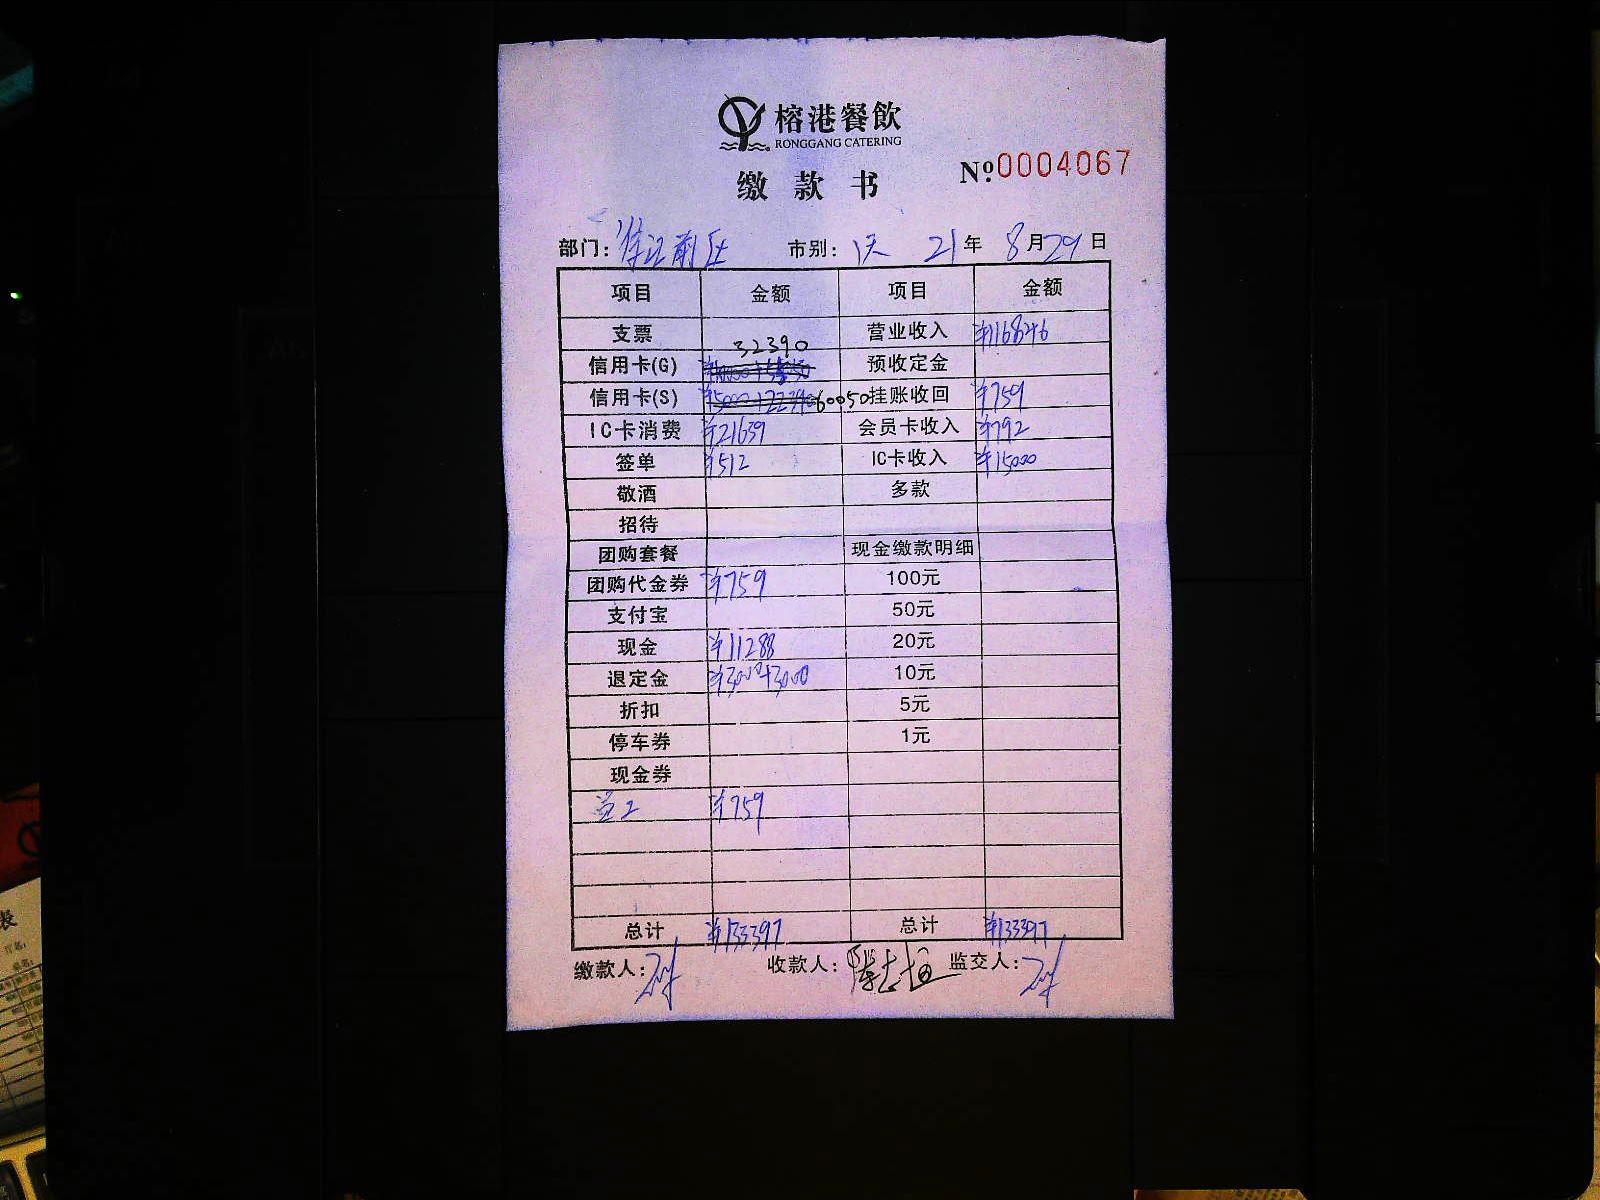 榕港餐飲
RONGGANG CATERING
缴款书 №0004067
部门: 市别: 21年 8月29日
项目 金额 项目 金额
支票 营业收入 ¥116846
信用卡(G) 32390 预收定金
信用卡(S) 60050 挂账收回 ¥759
IC卡消费 ¥21639 会员卡收入 ¥792
签单 ¥512 IC卡收入 ¥15000
敬酒 多款
招待
团购套餐 现金缴款明细
团购代金券 ¥759 100元
支付宝 50元
现金 ¥11288 20元
退定金 ¥3000+3000 10元
折扣 5元
停车券 1元
现金券
¥759
总计 ¥133397 总计 ¥133397
缴款人: 收款人: 监交人: